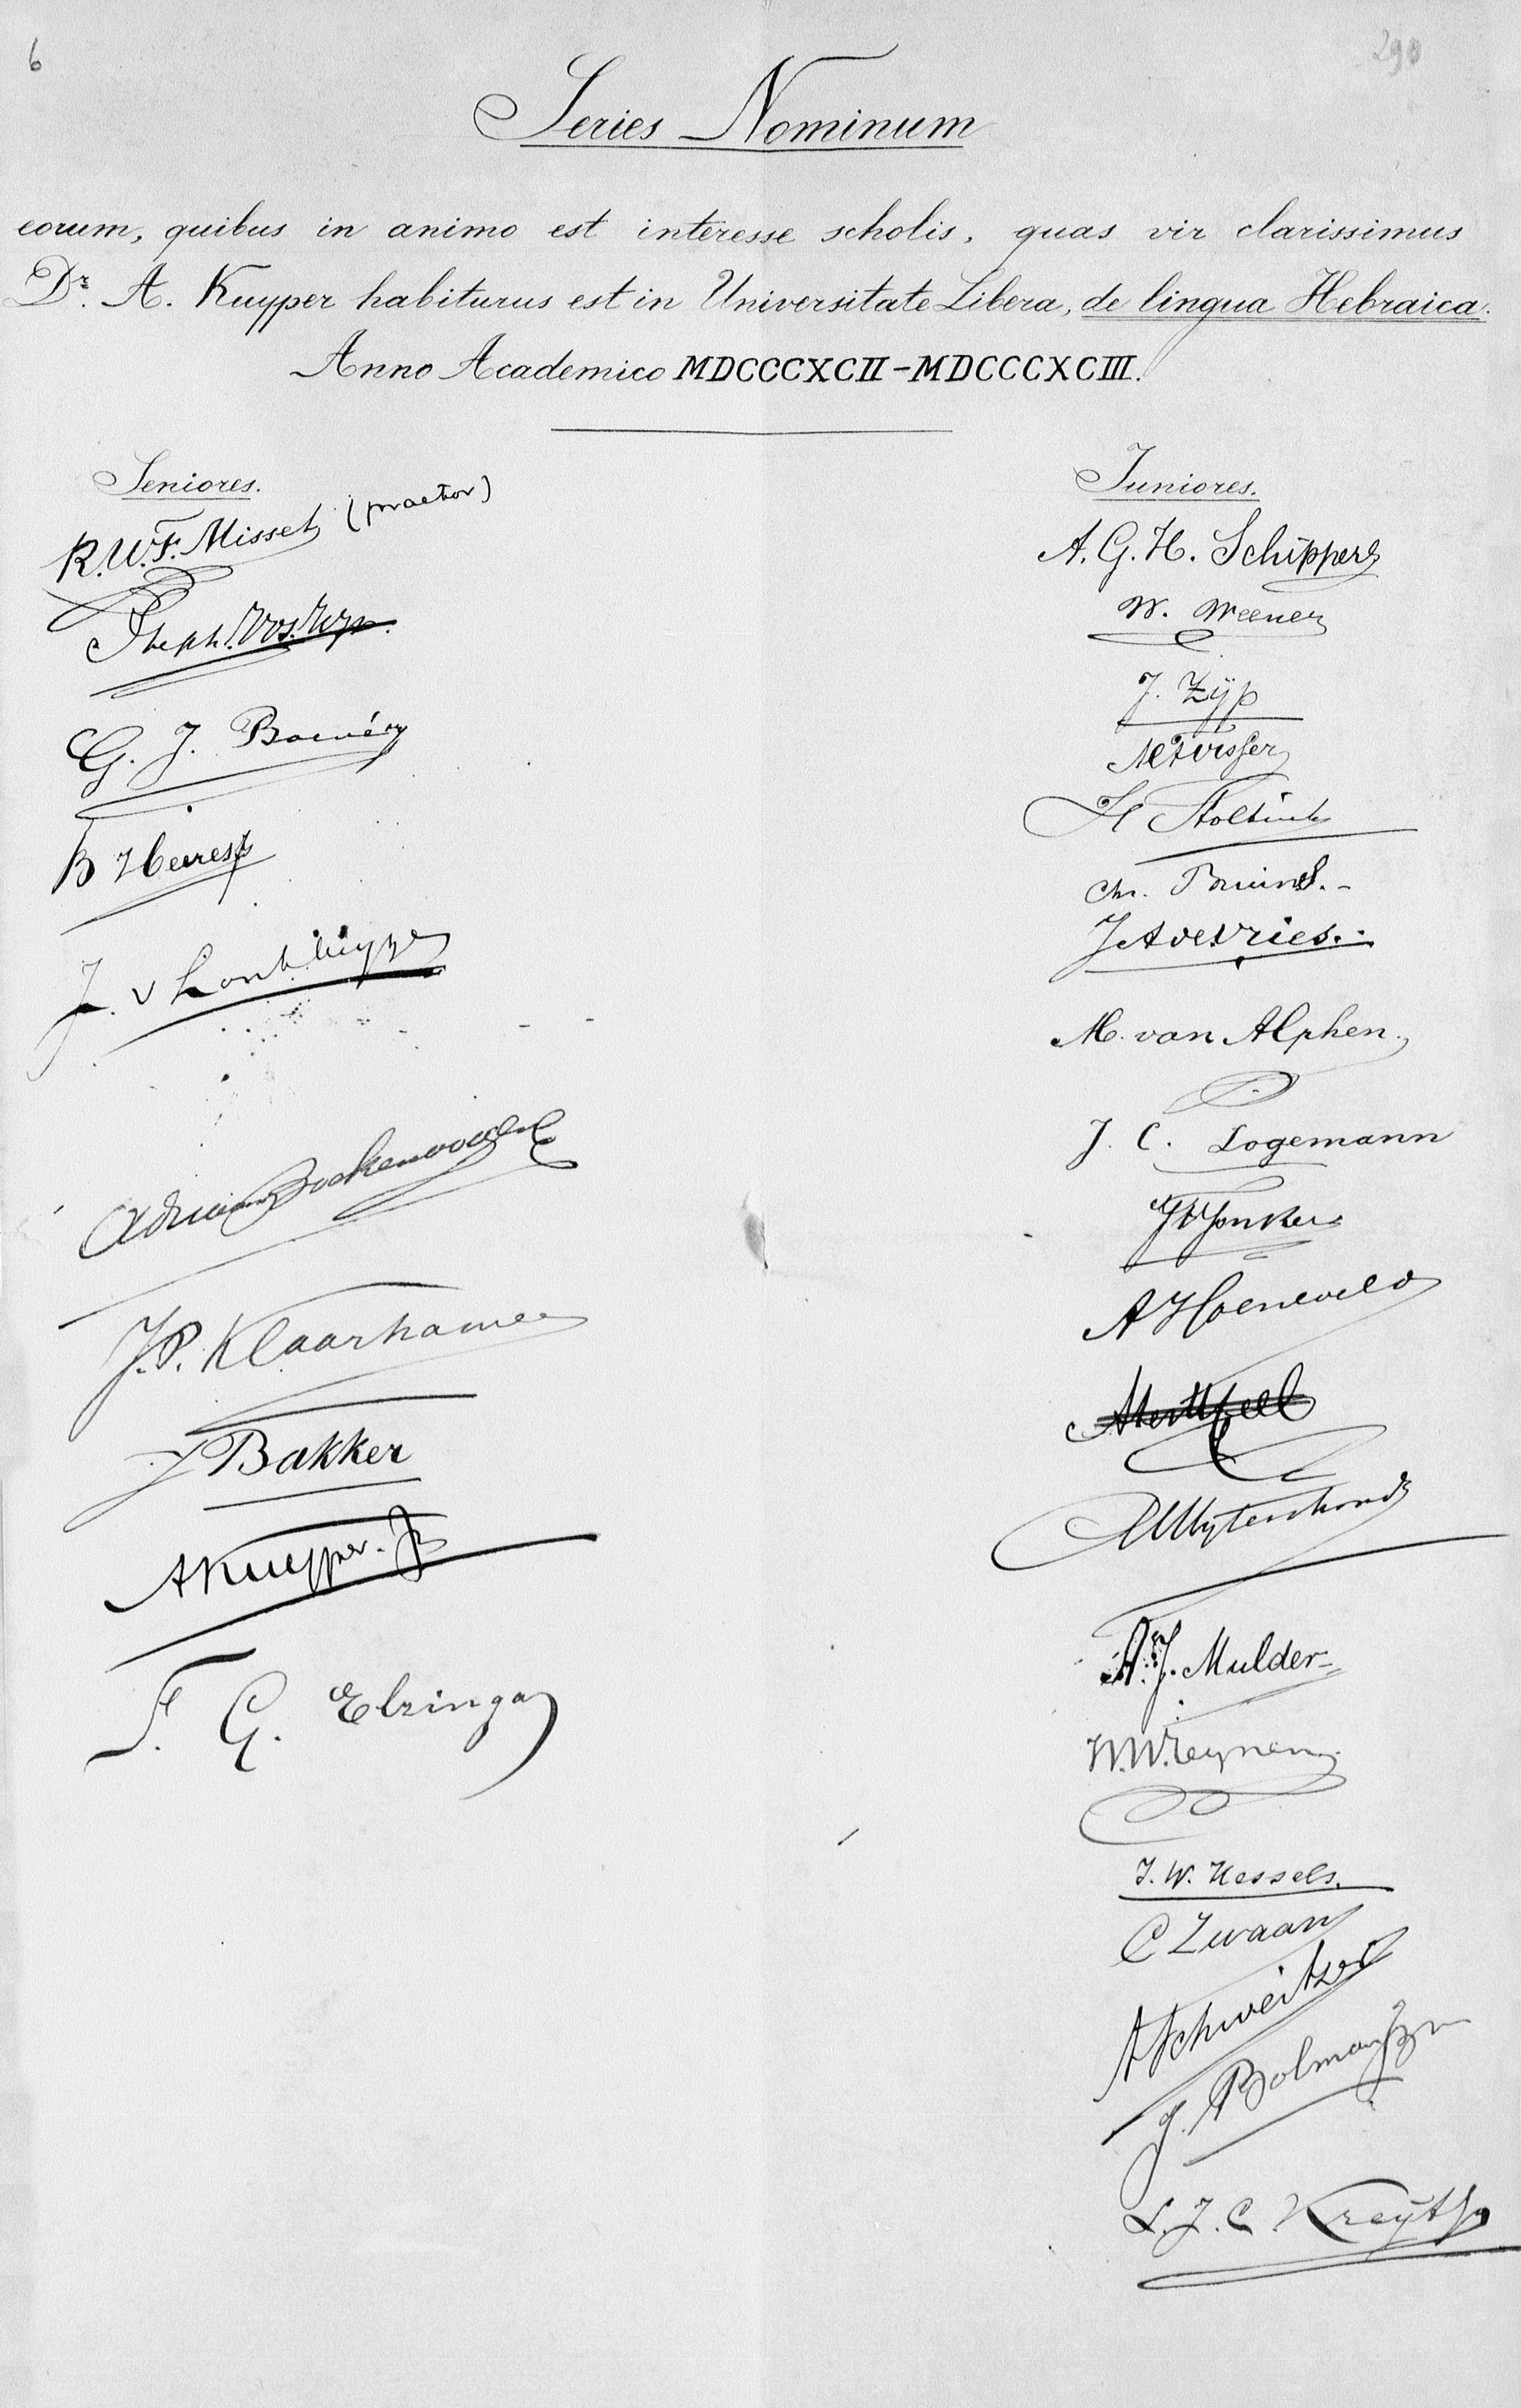 6
290
Series Nominum
eorum, quibus in animo est interesse scholis, quas vir clarissimus
Dr. A. Kuyper habiturus est in Universitate Libera, de lingua Hebraica.
Anno Academico MDCCCXCII-MDCCCXCIII.
Seniores.
R.W.F. Misset (praetor)
Steph. Vos.
G. J.
B Heeres
J. v Lonkhuyzen
J.P. Klaarhamer
J Bakker
AKuyper. Jr
F. G. Elzinga
Juniores.
A. G. H. Schippers
W. Weener
J. Zijp
Visser
H Stoltink
Chr. Bruins.
J A de Vries.
M. van Alphen.
J. C. Logemann
Jonker
A Hoeneveld
A. J. Mulder
W.W. Reynen
J. W. Kessels.
C Zwaan
A Schweitzer
J. Bolman
L. J. C. Kreyt